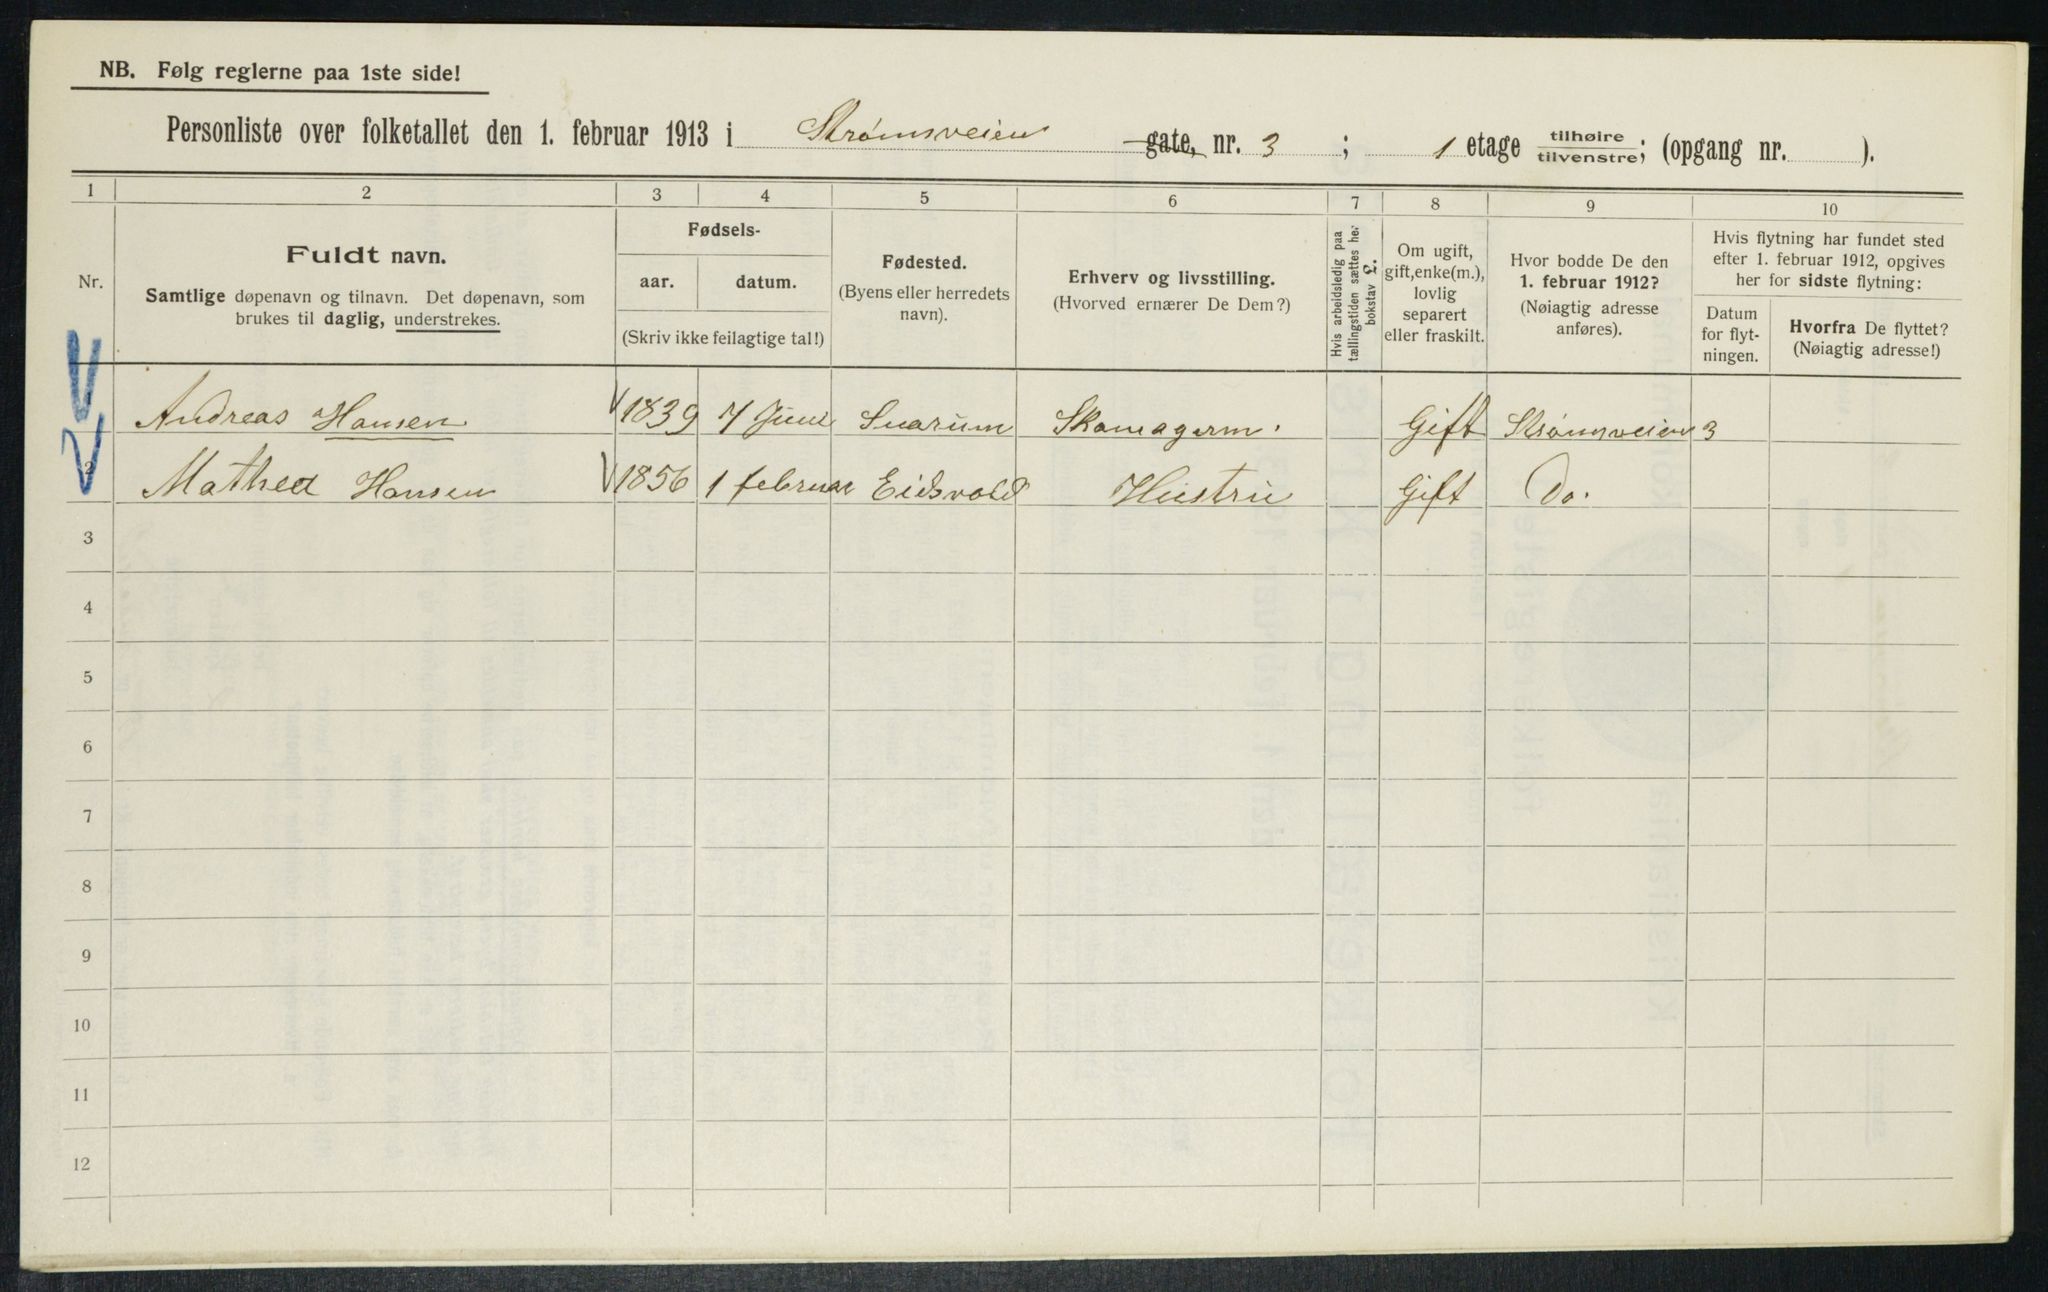 NB. Følg reglerne paa 1ste side!
Personliste over folketallet den 1. februar 1913 i Strømsveien gate, nr. 3 ; 1 etage tilhøire tilvenstre; (opgang nr. ).
1 2 3 4 5 6 7 8 9 10
Nr.
Fuldt navn.
Samtlige døpenavn og tilnavn. Det døpenavn, som
brukes til daglig, understrekes.
Fødsels-
aar. datum.
(Skriv ikke feilagtige tal!)
Fødested.
(Byens eller herredets
navn).
Erhverv og livsstilling.
(Hvorved ernærer De Dem?)
Hvis arbeidsledig paa
tællingstiden sættes her
bokstav L.
Om ugift,
gift, enke(m.),
lovlig
separert
eller fraskilt.
Hvor bodde De den
1. februar 1912?
(Nøiagtig adresse
anføres).
Hvis flytning har fundet sted
efter 1. februar 1912, opgives
her for sidste flytning:
Datum
for flyt-
ningen.
Hvorfra De flyttet?
(Nøiagtig adresse!)
Andreas Hansen 1839 7 Juni Skomagerm. Gift Strømsveien 3
2 Mathea Hansen 1856 1 februar Eidsvold Hustru Gift Do.
3
4
5
6
7
8
9
10
11
12